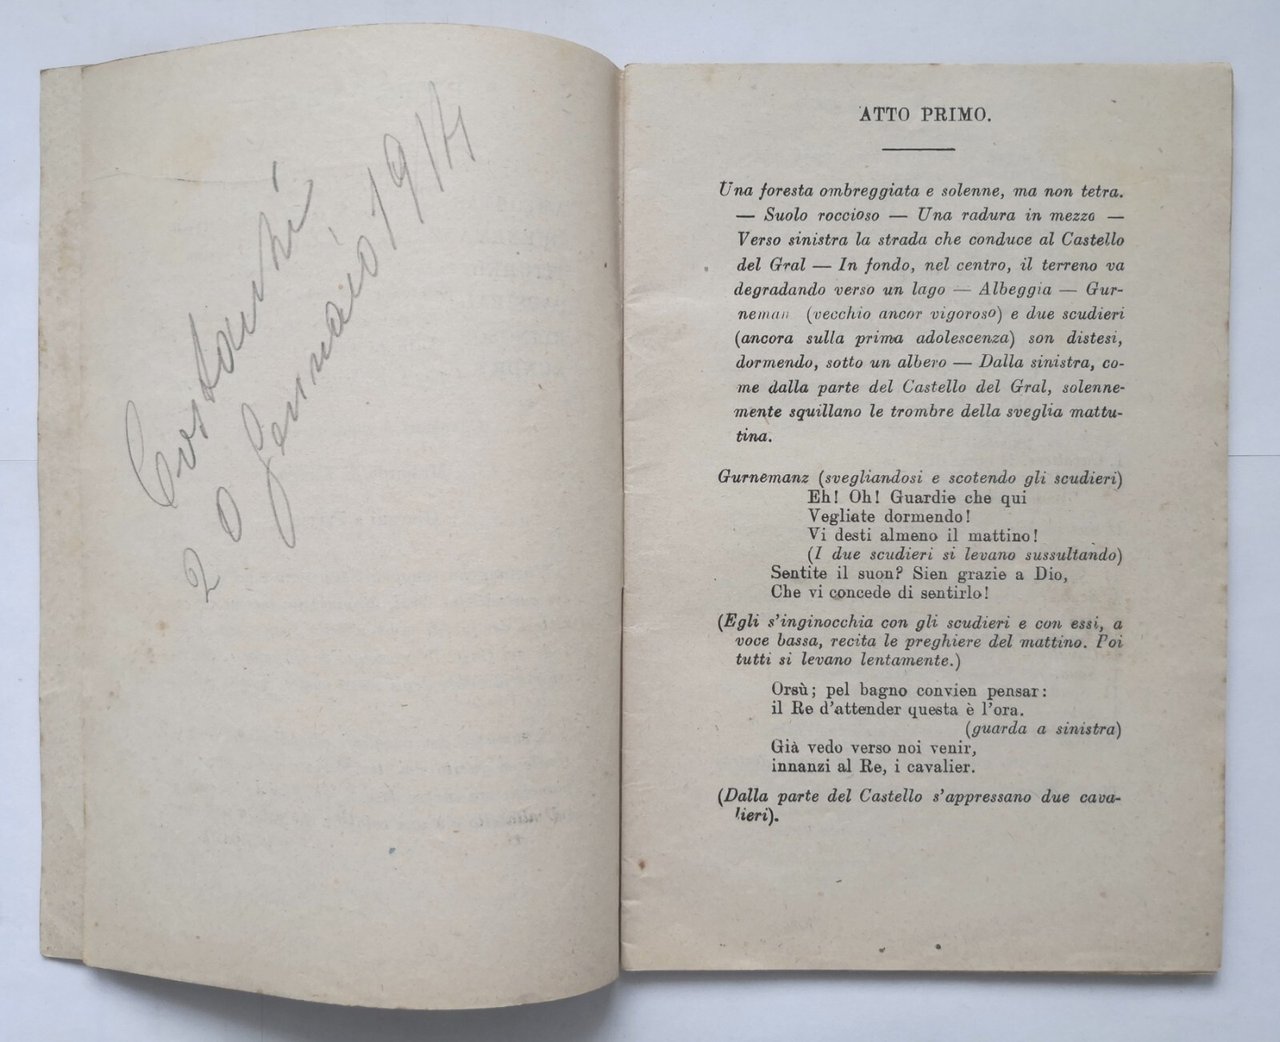 Costanzi
20 Gennaio 1914
ATTO PRIMO.
Una foresta ombreggiata e solenne, ma non tetra.
— Suolo roccioso — Una radura in mezzo —
Verso sinistra la strada che conduce al Castello
del Gral — In fondo, nel centro, il terreno va
degradando verso un lago — Albeggia — Gur-
neman (vecchio ancor vigoroso) e due scudieri
(ancora sulla prima adolescenza) son distesi,
dormendo, sotto un albero — Dalla sinistra, co-
me dalla parte del Castello del Gral, solenne-
mente squillano le trombre della sveglia mattu-
tina.
Gurnemanz (svegliandosi e scotendo gli scudieri)
Eh! Oh! Guardie che qui
Vegliate dormendo!
Vi desti almeno il mattino!
(I due scudieri si levano sussultando)
Sentite il suon? Sien grazie a Dio,
Che vi concede di sentirlo!
(Egli s'inginocchia con gli scudieri e con essi, a
voce bassa, recita le preghiere del mattino. Poi
tutti si levano lentamente.)
Orsù; pel bagno convien pensar:
il Re d'attender questa è l'ora.
(guarda a sinistra)
Già vedo verso noi venir,
innanzi al Re, i cavalier.
(Dalla parte del Castello s'appressano due cava-
lieri).